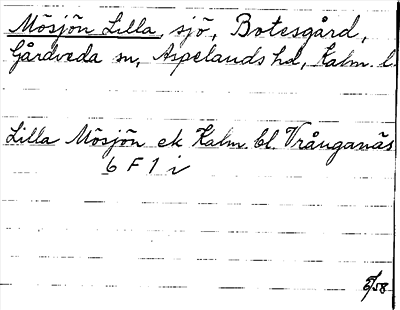 Mösjön Lilla, sjö, Botesgård,
Gårdveda sn, Aspelands hd, Kalm. l.
Lilla Mösjön ek Kalm. bl. Vrånganäs
6 F 1 i
5/58